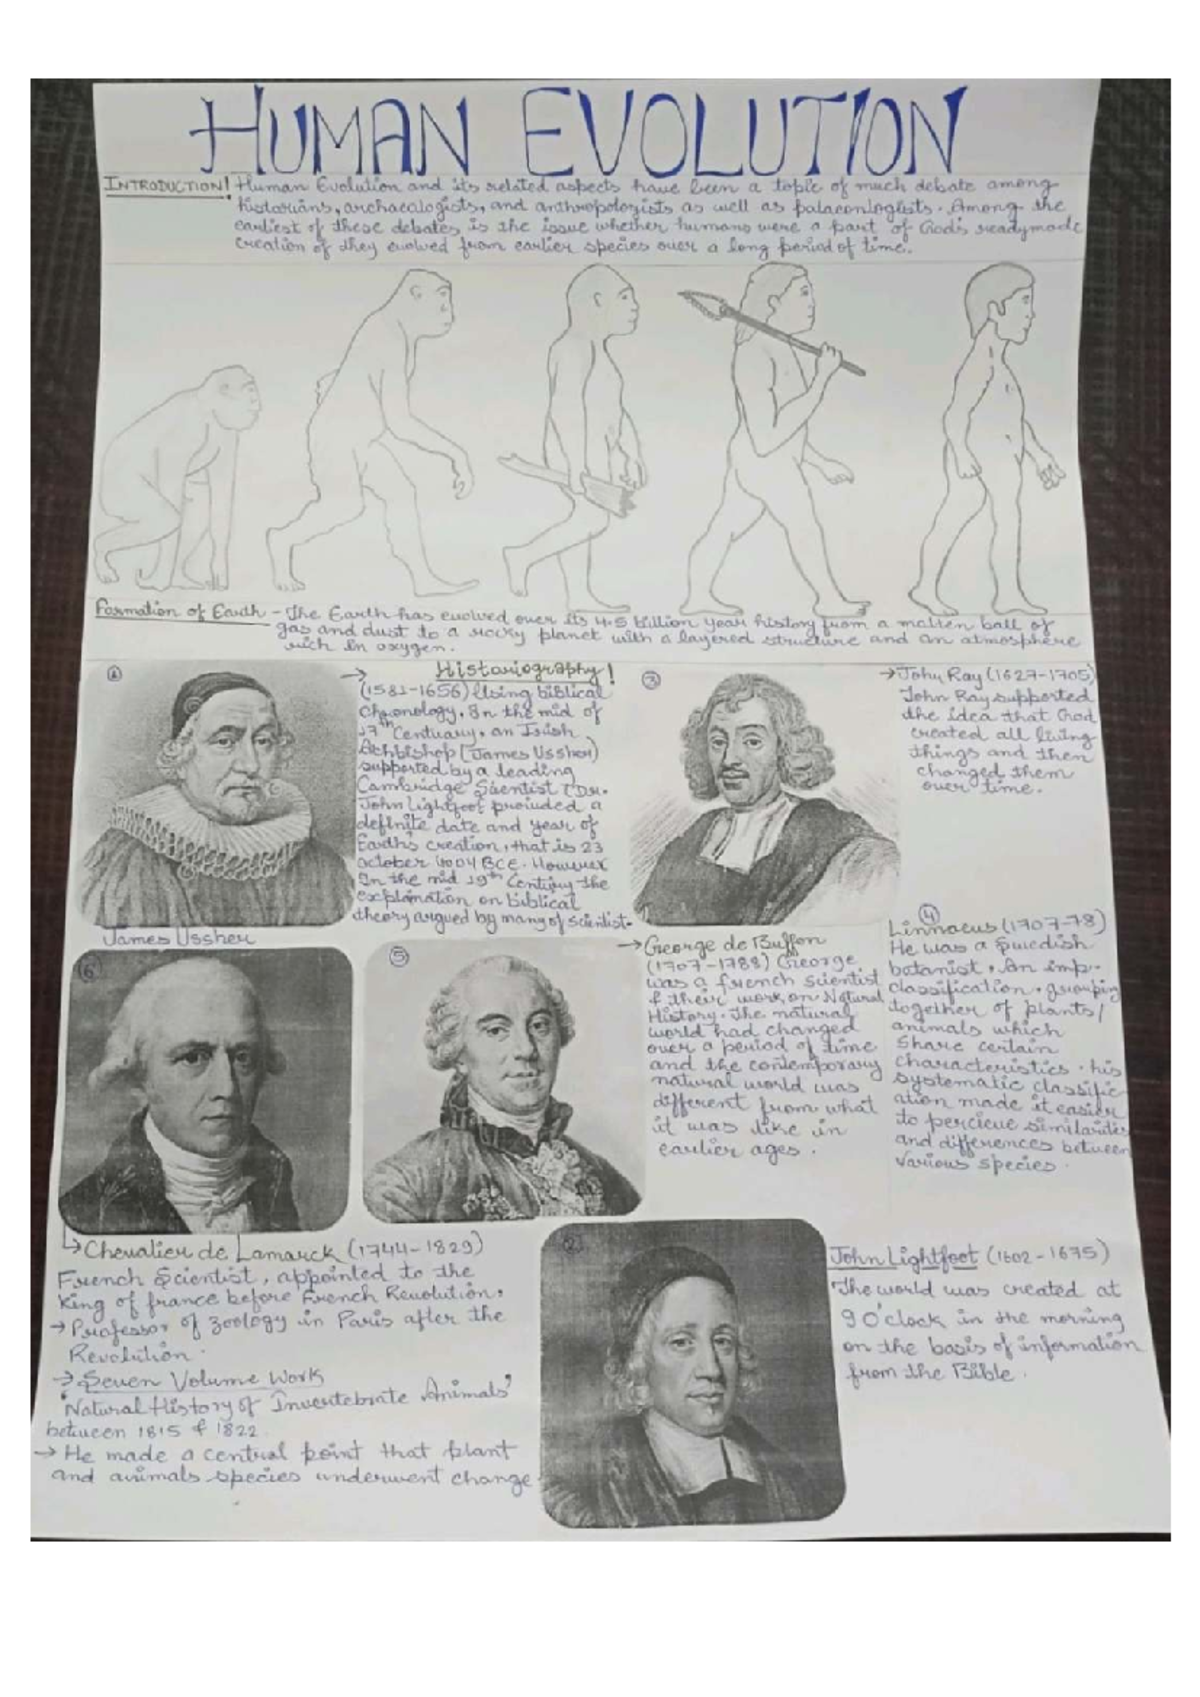 HUMAN EVOLUTION
INTRODUCTION! Human Evolution and its related aspects have been a topic of much debate among
historians, archaeologists, and anthropologists as well as palaeontogists. Among the
earliest of these debates is the issue whether humans were a part of God's readymade
creation of they evolved from earlier species over a long period of time.
Formation of Earth - The Earth has evolved over its 4.5 billion year history from a molten ball of
gas and dust to a rocky planet with a layered structure and an atmosphere
rich in oxygen.
1
→ Historiography!
(1581-1656) Using biblical
Chronology. In the mid of
17th Centuary, an Irish
Achbishop (James Ussher)
supported by a leading
Cambridge Scientist (Dr.
John Lightfoot provided a
definite date and year of
Earth's creation, that is 23
october 4004 BCE. However
In the mid 19th Century the
explanation on biblical
theory argued by many of scientist.
James Ussher
3
→ John Ray (1627-1705)
John Ray supported
the idea that God
created all living
things and then
changed them
over time.
4
Linnaeus (1707-78)
He was a Swedish
botanist. An imp.
classification. grouping
together of plants/
animals which
Share certain
characteristics. his
systematic classific
ation made it easier
to percieve similarities
and differences between
various species.
5
→ George de Buffon
(1707-1788) George
was a french scientist
& their work on Natural
History. The natural
world had changed
over a period of time
and the contemporary
natural world was
different from what
it was like in
earlier ages.
6
→ Chevalier de Lamarck (1744-1829)
French Scientist, appointed to the
King of france before French Revolution.
→ Professor of zoology in Paris after the
Revolution.
→ Seven Volume Work
'Natural History of Invertebrate Animals'
between 1815 & 1822
→ He made a central point that plant
and animals species underwent change
2
John Lightfoot (1602-1675)
The world was created at
9 O'clock in the morning
on the basis of information
from the Bible.